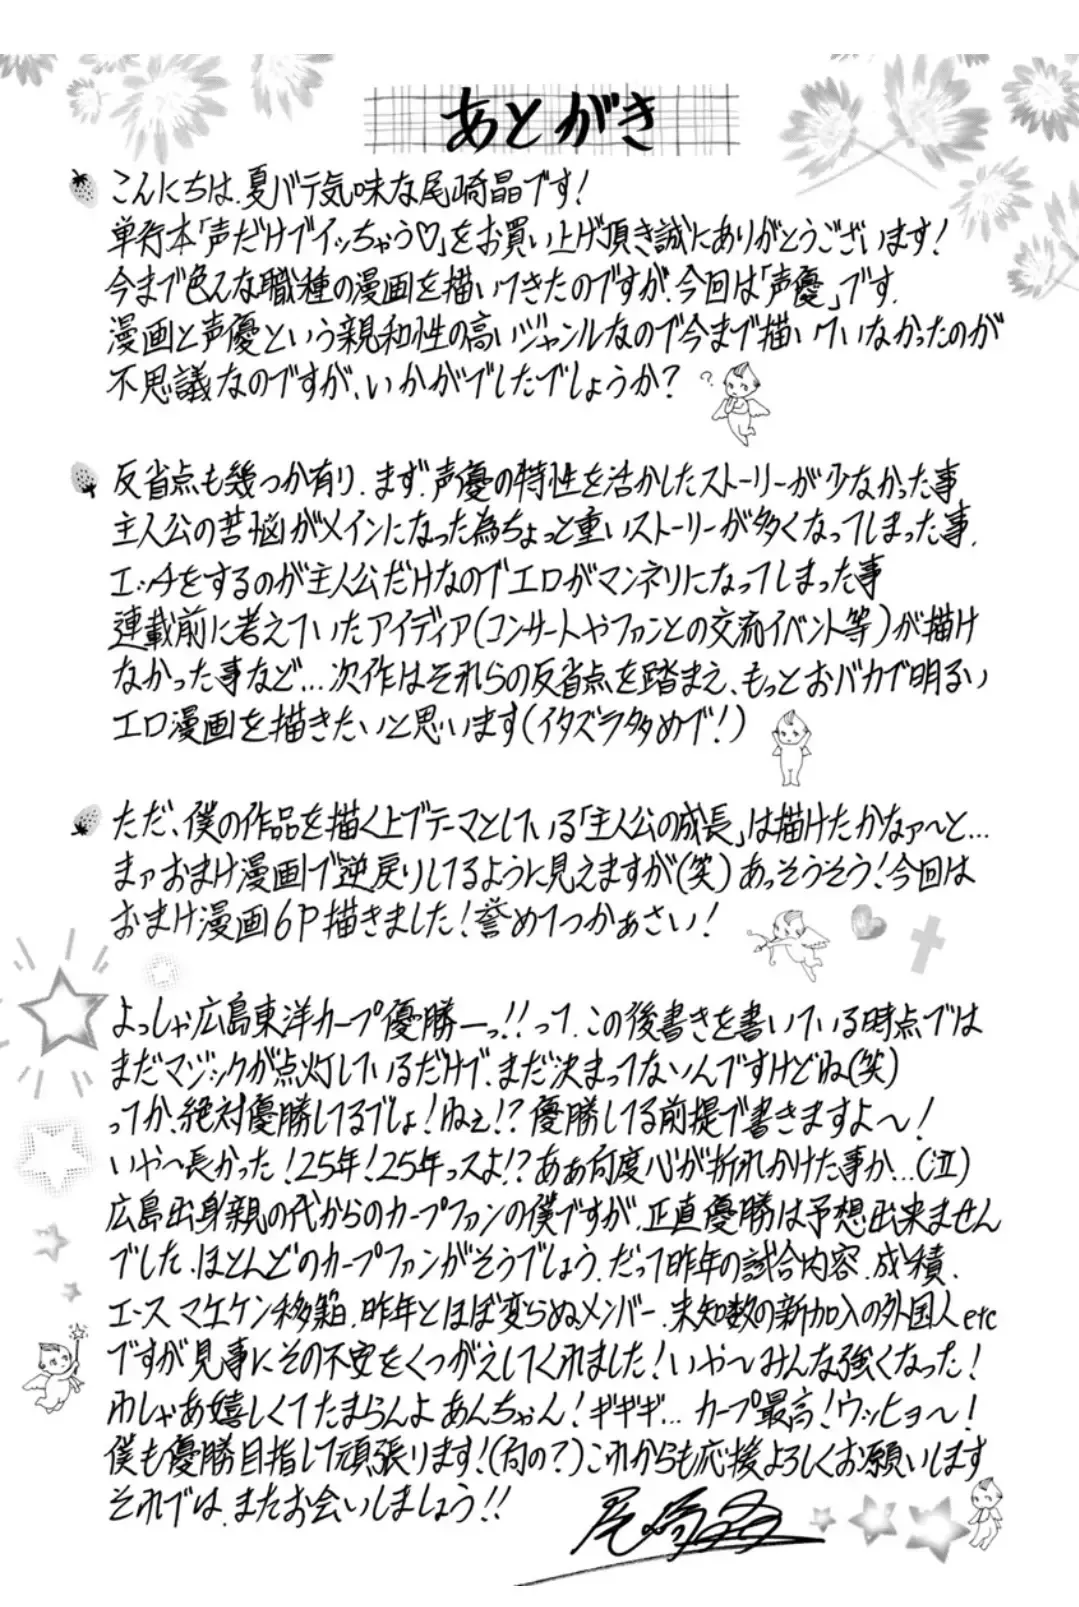 あとがき
こんにちは、夏バテ気味な尾崎晶です!
単行本「声だけでイッちゃう♡」をお買い上げ頂き誠にありがとうございます!
今まで色んな職種の漫画を描いてきたのですが、今回は「声優」です。
漫画と声優という親和性の高いジャンルなので今まで描いていなかったのが
不思議なのですが、いかがでしたでしょうか?
?
反省点も幾つか有り、まず、声優の特性を活かしたストーリーが少なかった事、
主人公の苦悩がメインになった為ちょっと重いストーリーが多くなってしまった事、
エッチをするのが主人公だけなのでエロがマンネリになってしまった事
連載前に考えていたアイディア(コンサートやファンとの交流イベント等)が描け
なかった事など…次作はそれらの反省点を踏まえ、もっとおバカで明るい
エロ漫画を描きたいと思います(イタズラ多めで!)
ただ、僕の作品を描く上でテーマとしている「主人公の成長」は描けたかなァ〜と…
まァおまけ漫画で逆戻りしてるように見えますが(笑)あっそうそう!今回は
おまけ漫画6P描きました!誉めてつかぁさい!
よっしゃ広島東洋カープ優勝ーっ!!って、この後書きを書いている時点では
まだマジックが点灯しているだけで、まだ決まってないんですけどね(笑)
ってか、絶対優勝してるでしょ!ねぇ!?優勝してる前提で書きますよ〜!
いや〜長かった!25年!25年っスよ!?あぁ何度心が折れかけた事か…(泣)
広島出身親の代からのカープファンの僕ですが、正直優勝は予想出来ません
でした、ほとんどのカープファンがそうでしょう、だって昨年の試合内容、成積、
エース マエケン移籍、昨年とほぼ変らぬメンバー、未知数の新加入の外国人etc
ですが見事にその不安をくつがえしてくれました!いや〜みんな強くなった!
わしゃあ嬉しくてたまらんよ あんちゃん!ギギギ… カープ最高!ウッヒョ〜!
僕も優勝目指して頑張ります!(何の?)これからも応援よろしくお願いします
それでは、またお会いしましょう!!
尾崎晶